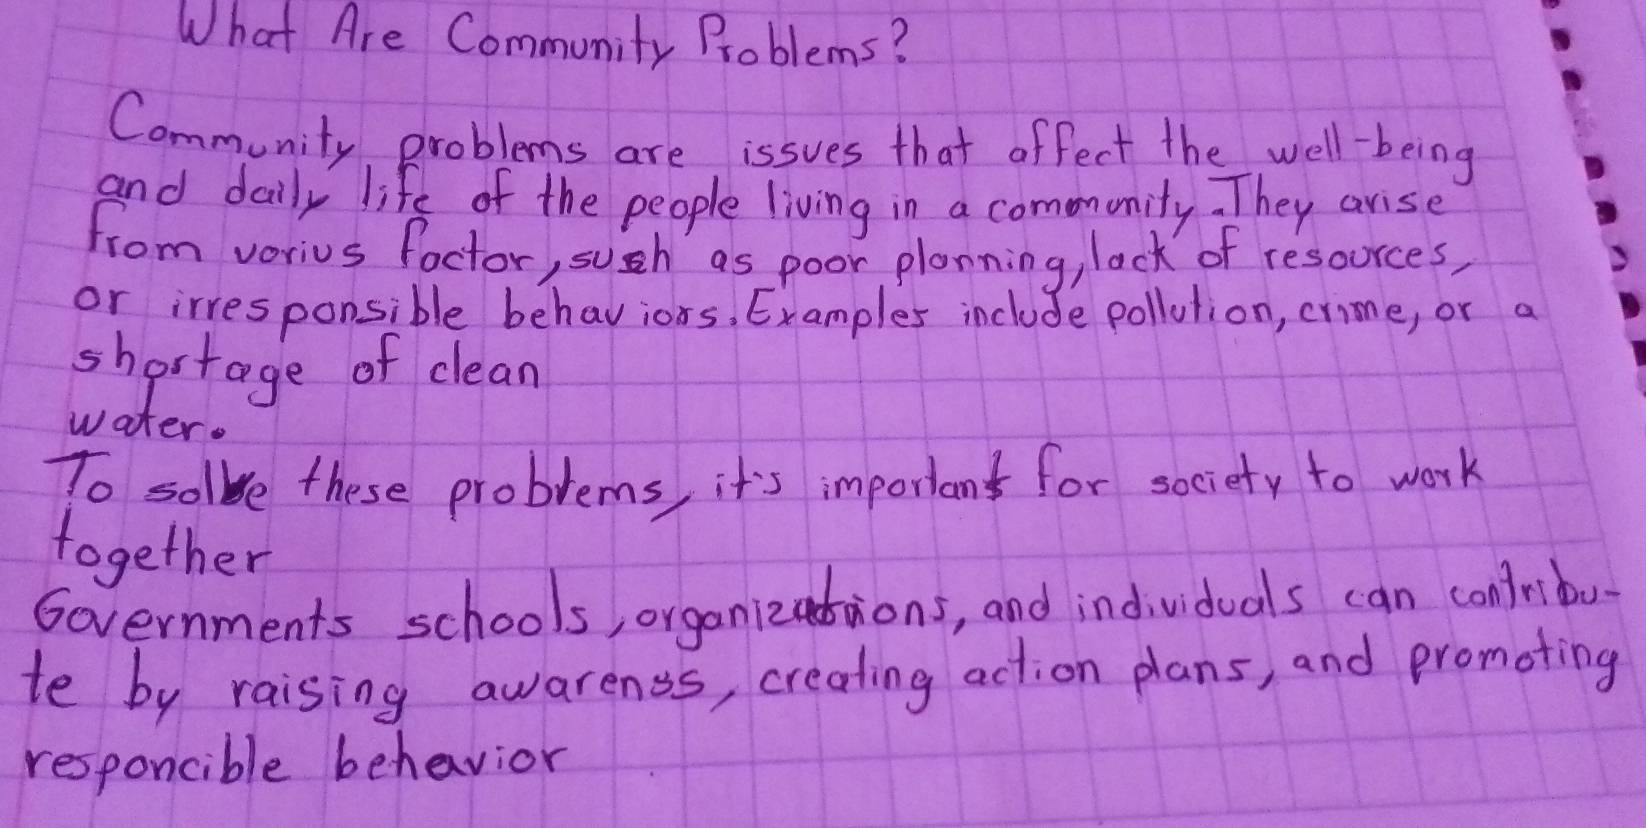 What Are Community Problems?
Community problems are issues that affect the well-being
and daily life of the people living in a community. They arise
from vorius factor, such as poor planning, lack of resources,
or irresponsible behaviors. Examples include pollution, crime, or a
shortage of clean
water.
To solve these problems, it's important for society to work
together
Governments schools, organizations, and individuals can contribu-
te by raising awarenss, creating action plans, and promoting
responcible behavior